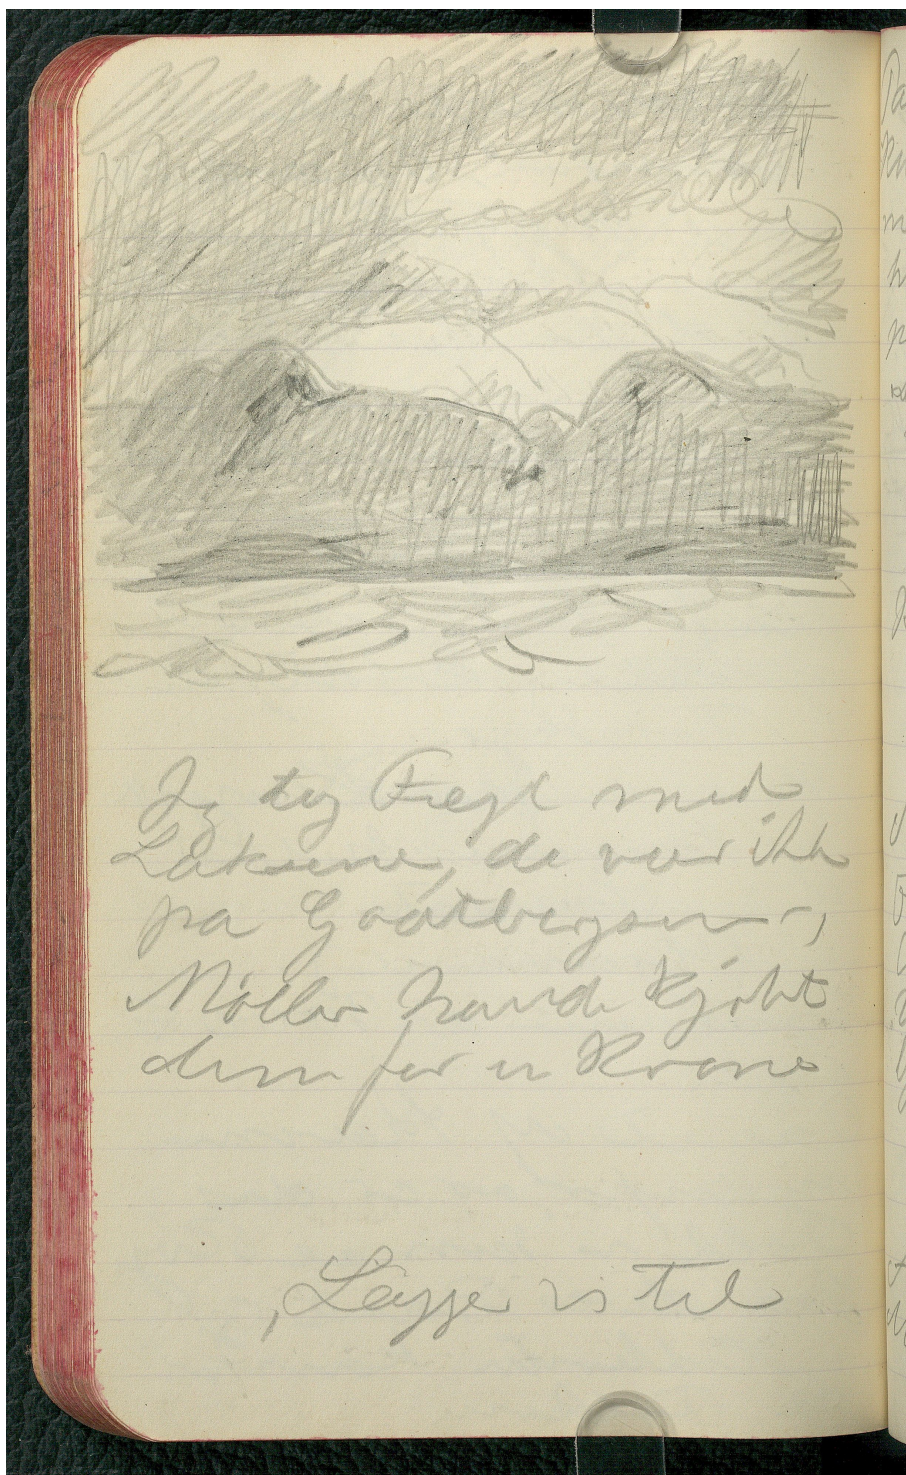 Jeg tog Feejl med
Laksene, de var ikke
på Godtbergsen -,
Möller havde Kjöbt
dem for en Krone
, Lægger vi til